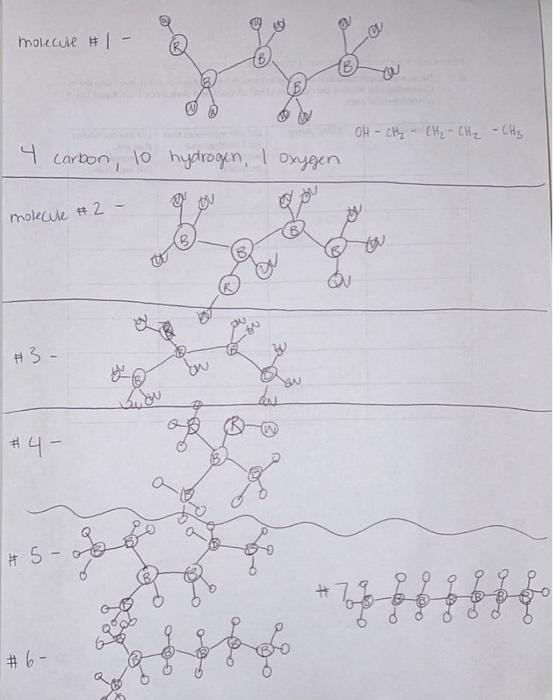 molecule #1 -
W
W W
W
W
R
B
B
B
B
W
W W
W W
OH - CH2 - CH2 - CH2 - CH3
4 carbon, 10 hydrogen, 1 oxygen
molecule #2 -
W W
W W
W
B
B
B
B
W
W
W
R
W
W
#3 -
W
R
W W
B
B
W
W
W
B
B
W
W W
W
#4 -
B
R
W
B
B
B
#5 -
B
B
B
B
B
B
B
#7
B
B
B
B
B
B
B
#6 -
B
B
B
B
B
B
B